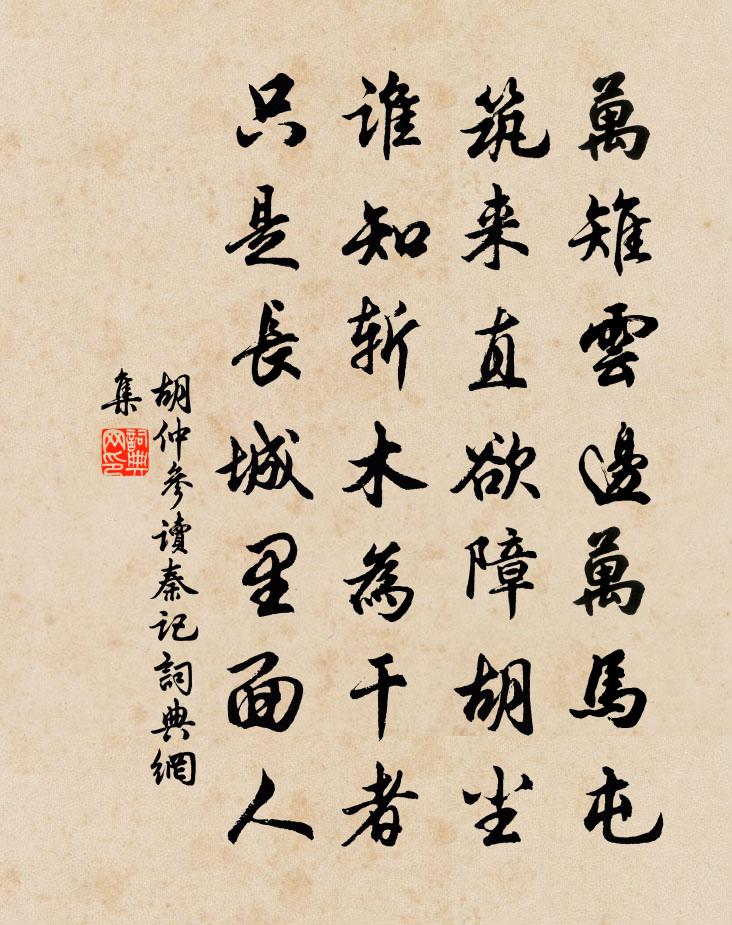 萬雉雲邊萬馬屯
筑来直欲障胡尘
誰知斬木為干者
只是長城里面人
胡仲參讀秦記詞典網
集
詞典
网印